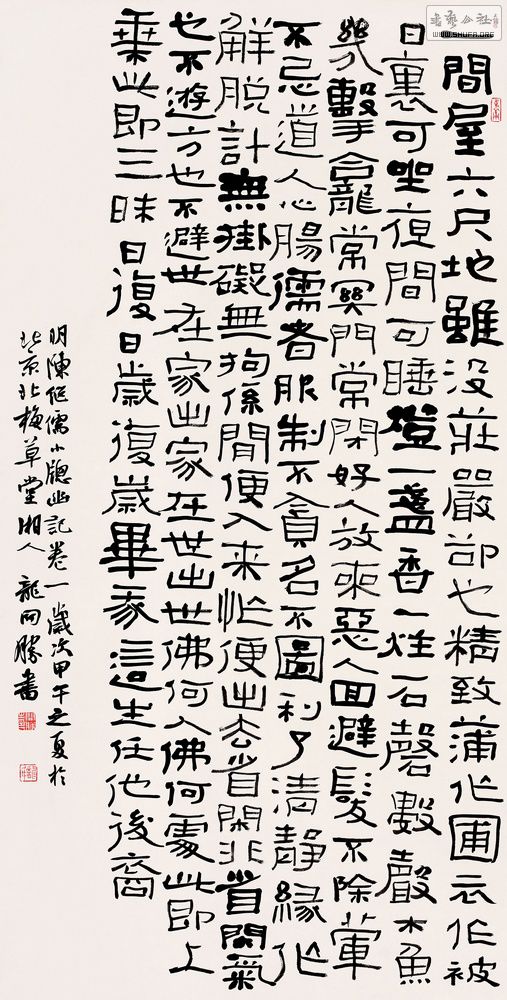 間屋六尺地雖没莊嚴卻也精致蒲作圃云作被
日裏可坐夜間可睡燈一盞香一炷石磬數聲木魚
幾擊龕常冥門常閉好人放來惡人回避髮不除葷
不忌道人心腸儒者服制不貪名不圖利了清靜緣作
解脱計無掛礙無拘係間便入来忙便出去省閑非省閑氣
也不游方也不避世在家出家在世出世佛何人佛何處此即上
乘此即三昧日復日歲復歲畢我這生任他後裔
明陳繼儒小牕幽記卷一歲次甲午之夏於
北京北梅草堂湘人龍開勝書
書藝公社
WWW.SHUFA.ORG